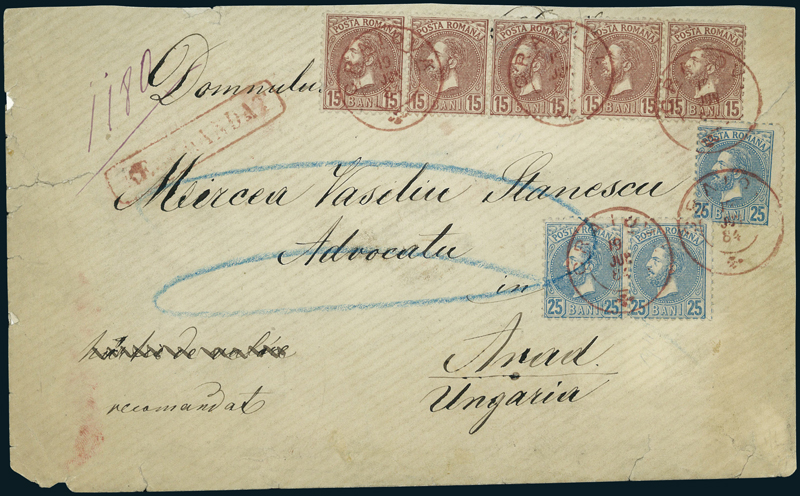 POSTA ROMANA POSTA ROMANA POSTA ROMANA POSTA ROMANA POSTA ROMANA
15 BANI 15 15 BANI 15 15 BANI 15 15 BANI 15 15 BANI 15
1180
Domnului
POSTA ROMANA
25 BANI 25
84
Mircea Vasiliu Stanescu
POSTA ROMANA POSTA ROMANA
19
25 BANI 25 25 BANI 25
Advocatu
in
Arad.
recomandat
Ungaria